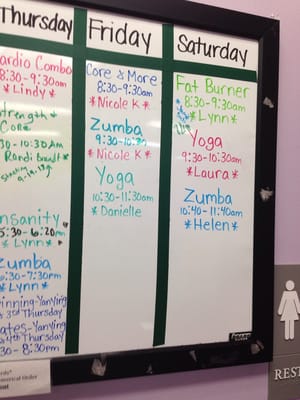 Thursday
Cardio Combo
8:30-9:30am
*Lindy*
Strength &
Core
30-10:30AM
Randi
Insanity
5:30-6:20pm
*Lynn*
Zumba
6:30-7:30pm
*Lynn*
Spinning-Yanying
3rd Thursday
Pilates-Yanying
4th Thursday
30-8:30pm
Friday
Core & More
8:30-9:30am
*Nicole K*
Zumba
9:30-10:30
*Nicole K*
Yoga
10:30-11:30am
*Danielle
Saturday
Fat Burner
8:30-9:30am
*Lynn*
Yoga
9:30-10:30am
*Laura*
Zumba
10:40-11:40am
*Helen*
REST